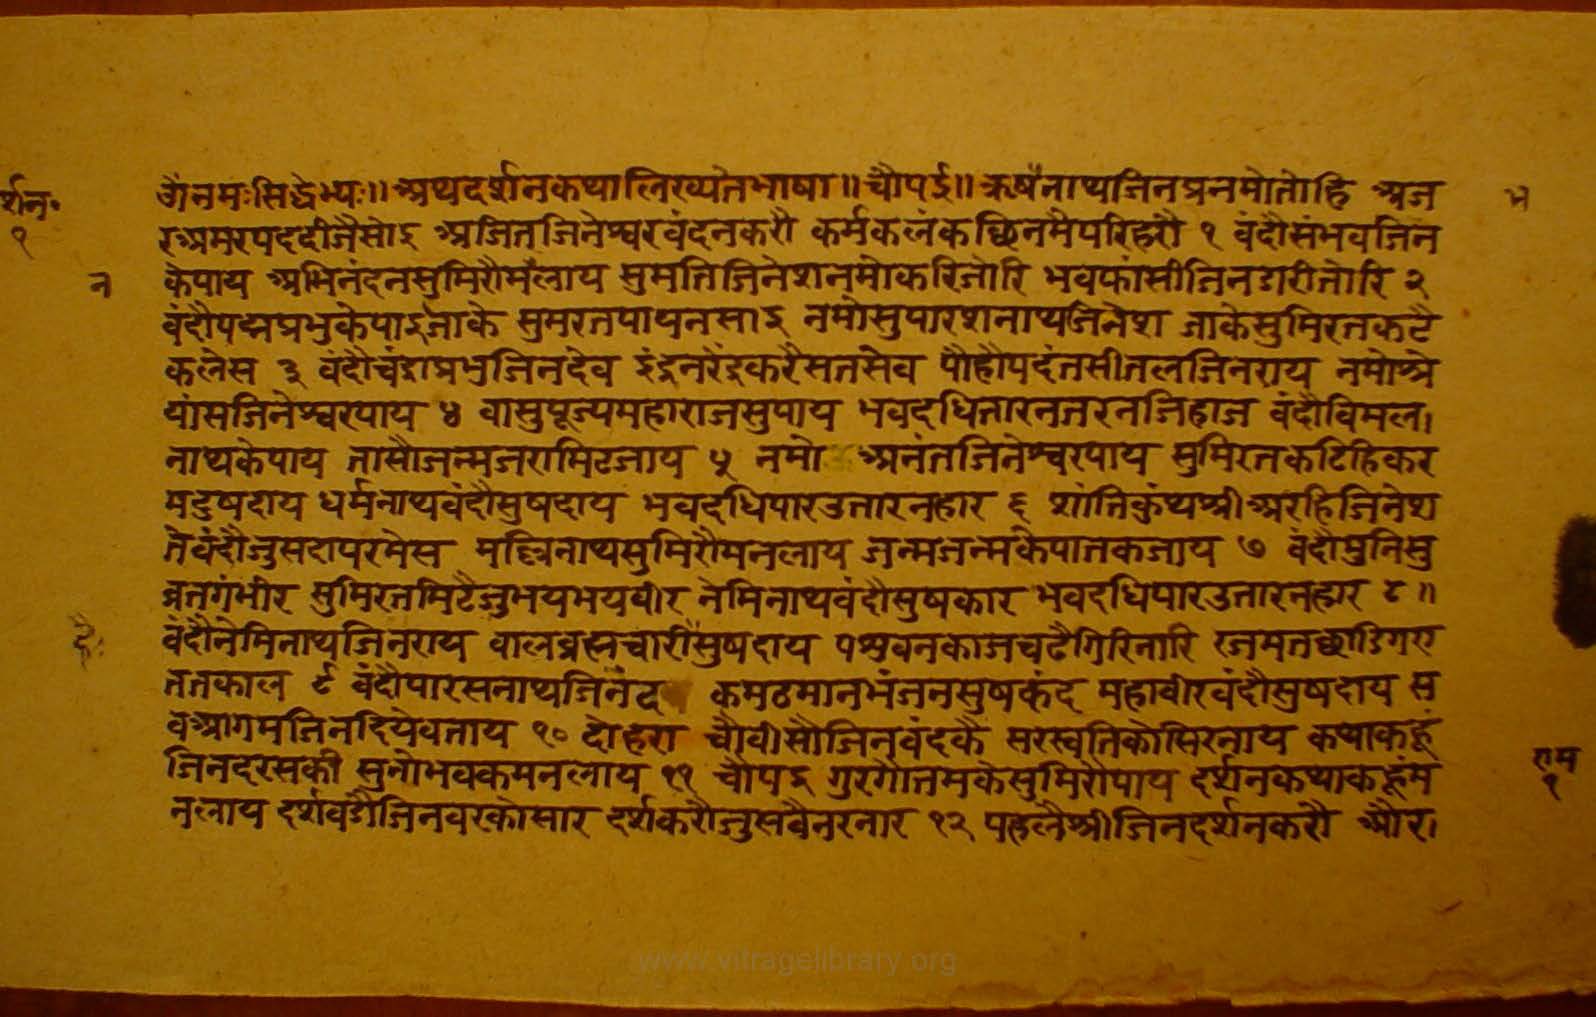 र्शन॰
१
न
ॐनमःसिद्धेभ्यः॥ अथदर्शनकथालिख्यतेभाषा॥ चौपई॥ ऋषनाथजिनप्रनमोतोहि अज
भ
रअमरपददीजैसोइ अजितजिनेश्वरवंदनकरौ कर्मकलंकछिनमैपरिहरौ १ वंदौसंभवजिन
केपाय अभिनंदनसुमिरौमंलाय सुमतिजिनेशनमोकरिजोरि भवफांसीजिनडारीतोरि २
वंदौपद्मप्रभुकेपाइजाके सुमरतपायनसाइ नमोसुपारशनाथजिनेश जाकेसुमिरतकटै
कलेस ३ वंदौचंद्राप्रभुजिनदेव इंद्रनरेंद्रकरैसतसेव पौहौपदंतसीतलजिनराय नमोश्रे
यांसजिनेश्वरपाय ४ वासुपूज्यमहाराजसुपाय भवदधितारनतरनजिहाज वंदौविमल।
नाथकेपाय तासौजन्मजरामिटजाय ५ नमो अनंतजिनेश्वरपाय सुमिरतकटिहिकर
मदुषदाय धर्मनाथवंदौसुषदाय भवदधिपारउतारनहार ६ शांतिकुंथश्रीअरहिजिनेश
तेवंदौजुसदापरमेस मल्लिनाथसुमिरौमनलाय जन्मजन्मकेपातकजाय ७ वंदौमुनिसु
व्रतगंभीर सुमिरतमिटैजुभयभयवीर नेमिनाथवंदौसुषकार भवदधिपारउतारनहार ८॥
वंदौनेमिनाथजिनराय वालब्रह्मचारीसुषदाय पशुवनकाजचढैगिरिनारि रजमतछाडिगए
ततकाल ९ वंदौपारसनाथजिनंद कमठमानभंजनसुषकंद महावीरवंदौसुषदाय स
वेआगमजिनदियेवताय १० दोहरा चौवीसौजिनवंदकै सरस्वतिकोसिरनाय कथाकहूं
जिनदरसकी सुनोभवकमनलाय ११ चौपइ गुरगौतमकेसुमिरौपाय दर्शनकथाकहूंम
राम
१
नलाय दर्शवडौजिनवरकोसार दर्शकरौजुसवैनरनार १२ पहलैश्रीजिनदर्शनकरौ और।
www.vitragelibrary.org